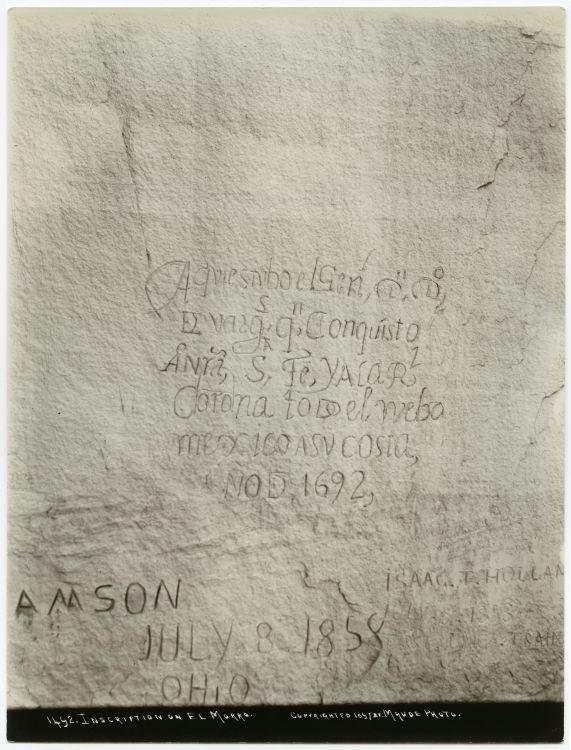 Aqui estubo el Gen^l, D^n, D^o,
EL VARG^S, q^n, Conquisto
ANra, S^TA, Fe, YALAR^l
Corona todo el nuebo
mexico ASU COSTA,
NOD, 1692,
AMSON
JULY 8 1858
OHIO
ISAAC. T. HOLLAN
TRAIN
1492. INSCRIPTION ON EL MORRO.
COPYRIGHTED MAUDE PHOTO.